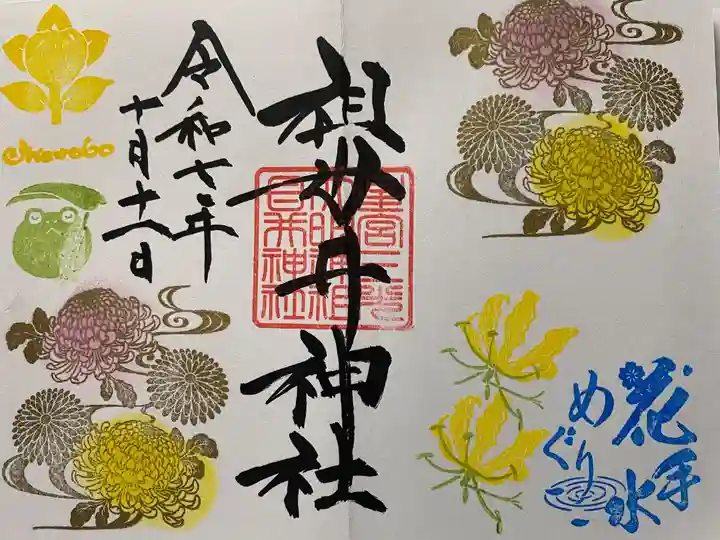 花手水
めぐり
祖母井神社
令和七年
十月十一日